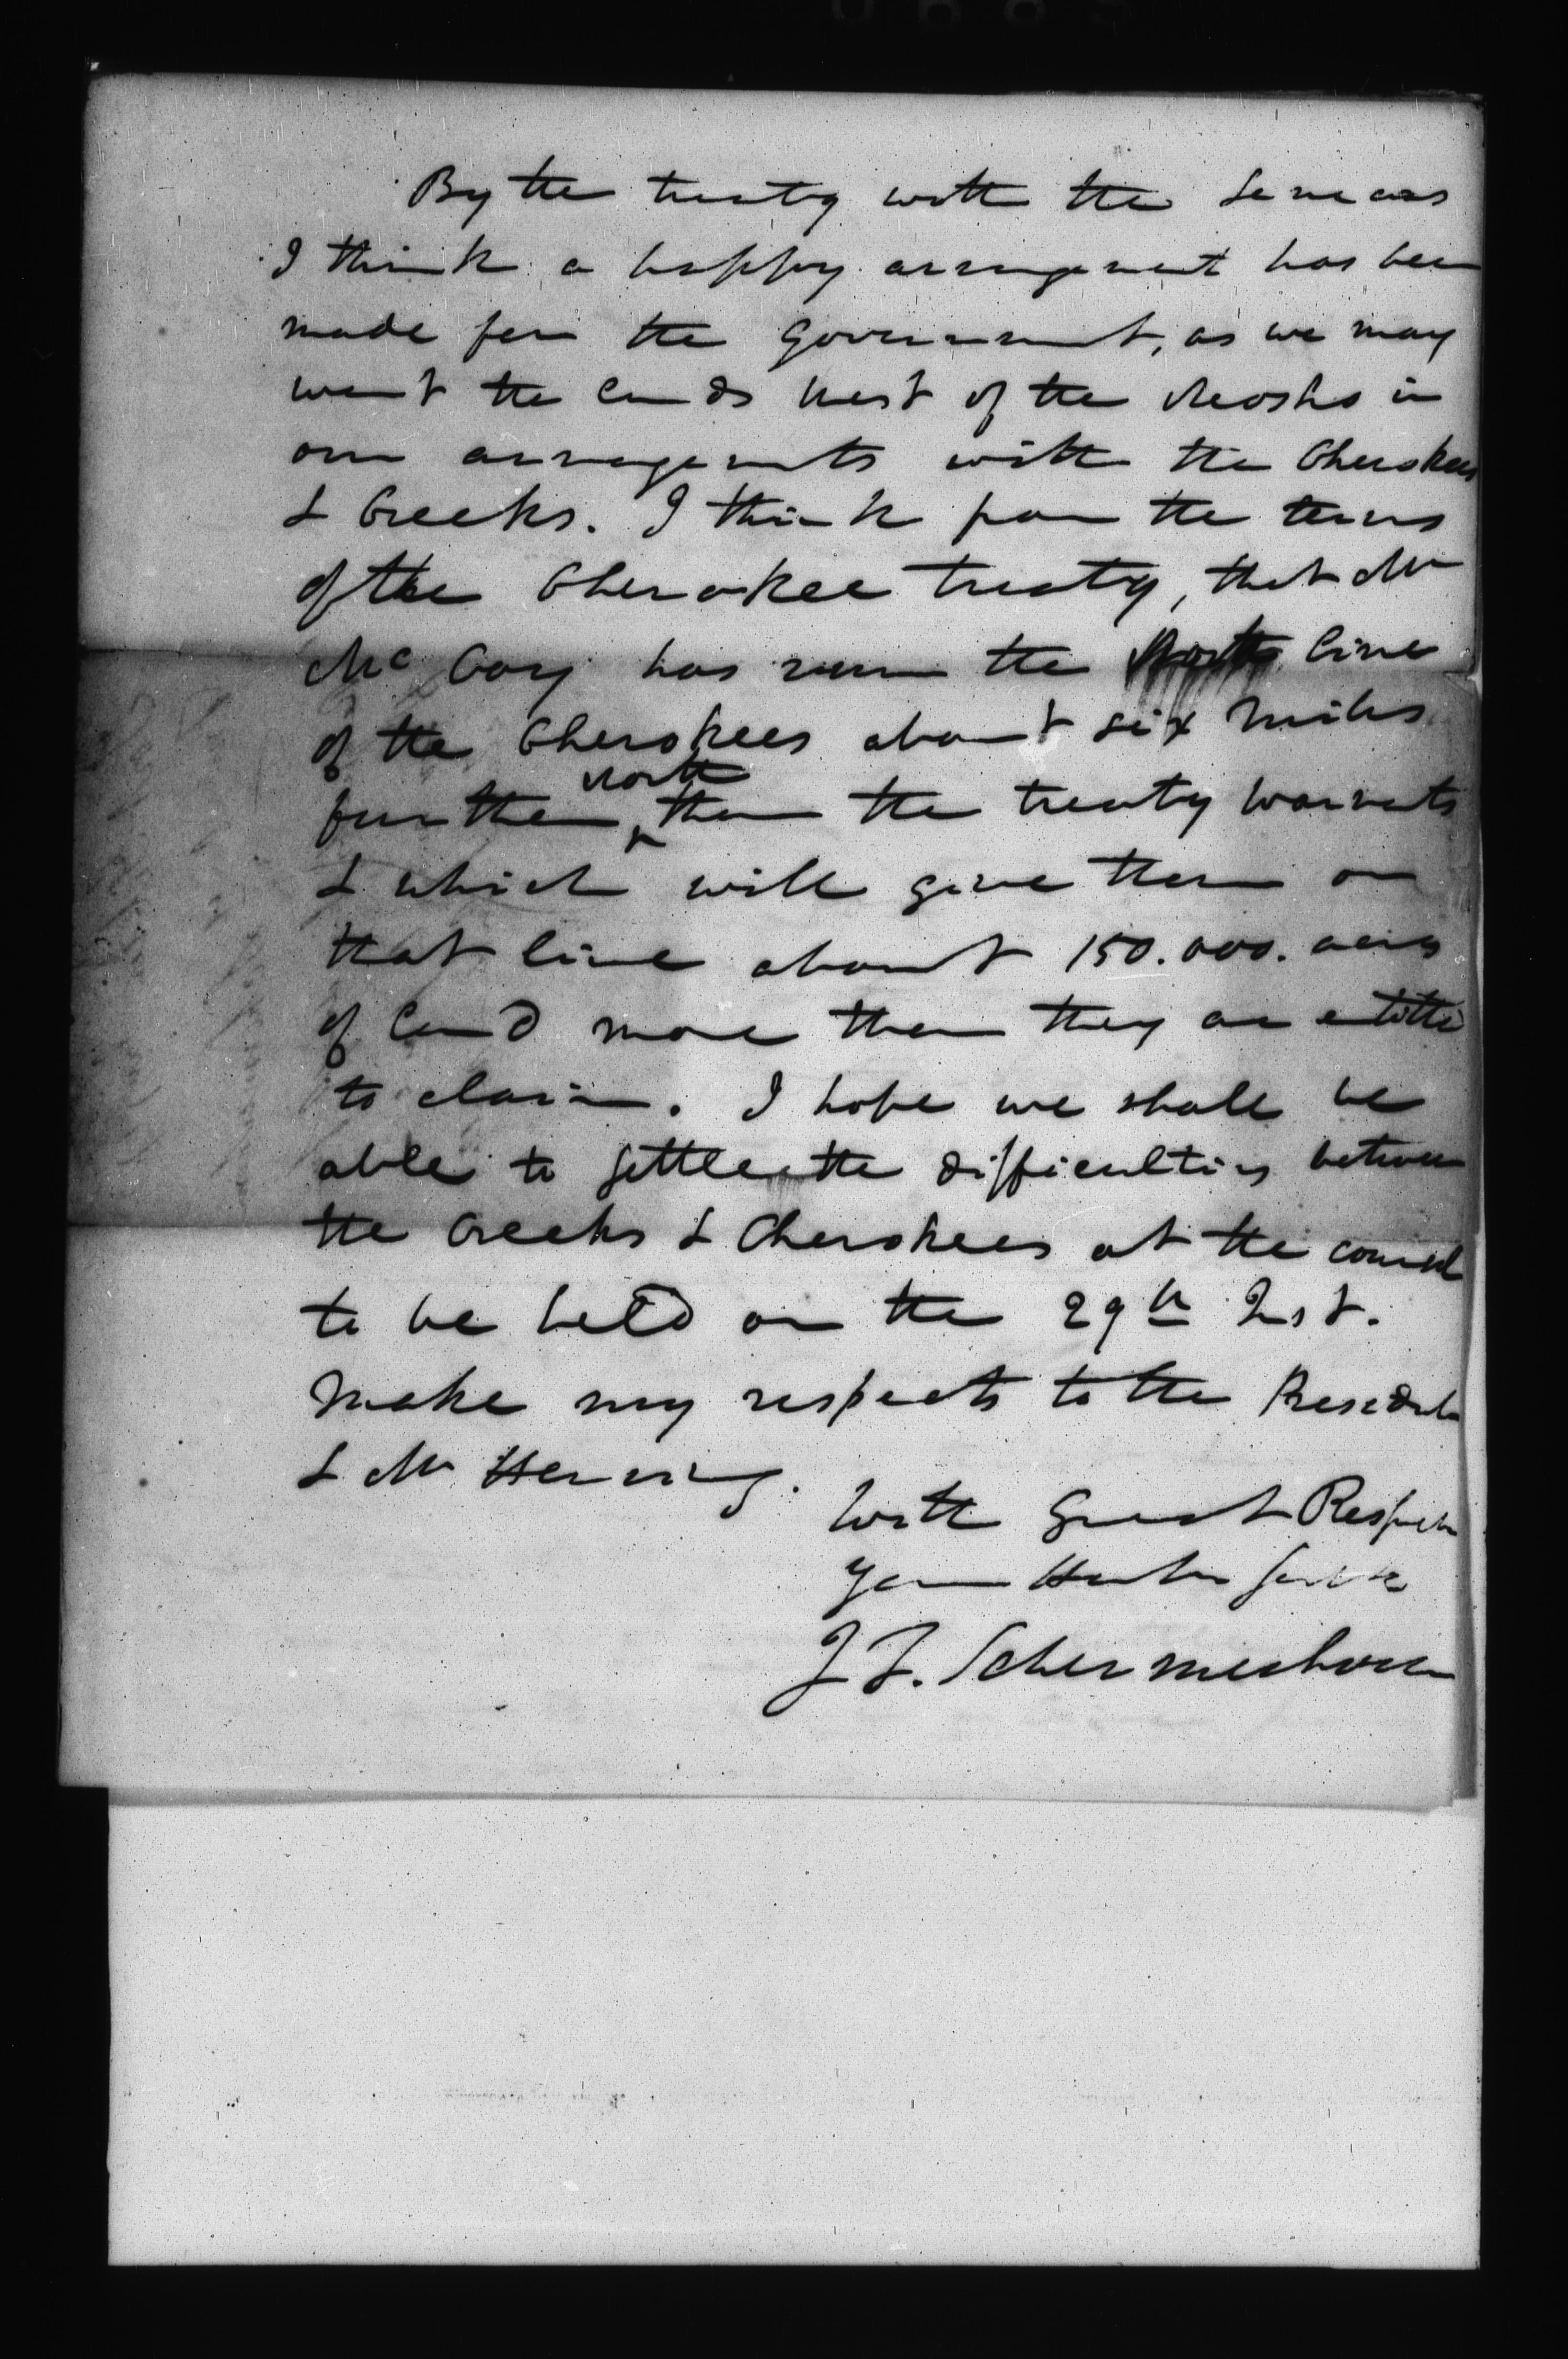 By the treaty with the Senecas
I think a happy arrangement has been
made for the Government, as we may
want the lands west of the Neosho in
our arrangements with the Cherokees
& Creeks. I think from the terms
of the Cherokee treaty, that Mr
McCoy has run the North line
of the Cherokees about six miles
further north than the treaty warrants
& which will give them on
that line about 150.000. acres
of land more than they are entitled
to claim. I hope we shall be
able to settle the difficulties between
the Creeks & Cherokees at the council
to be held on the 29th Inst.
Make my respects to the President
& Mr Herring.
With Great Respect
Your Humble Servt
J F. Schermerhorn